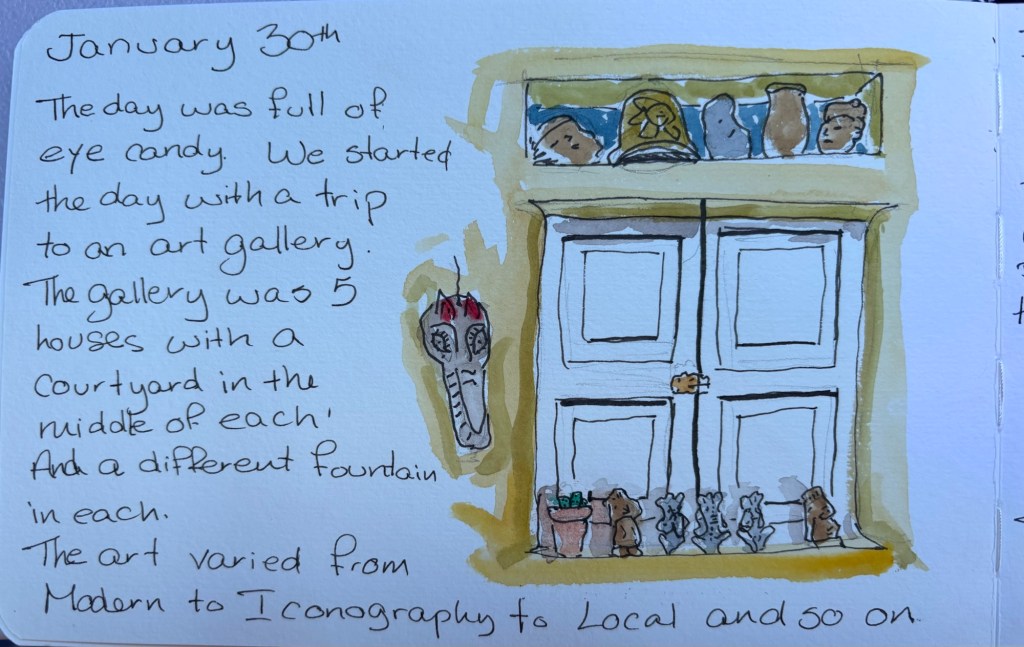 January 30th
The day was full of
eye candy. We started
the day with a trip
to an art gallery.
The gallery was 5
houses with a
courtyard in the
middle of each'
And a different fountain
in each.
The art varied from
Modern to Iconography to Local and so on.